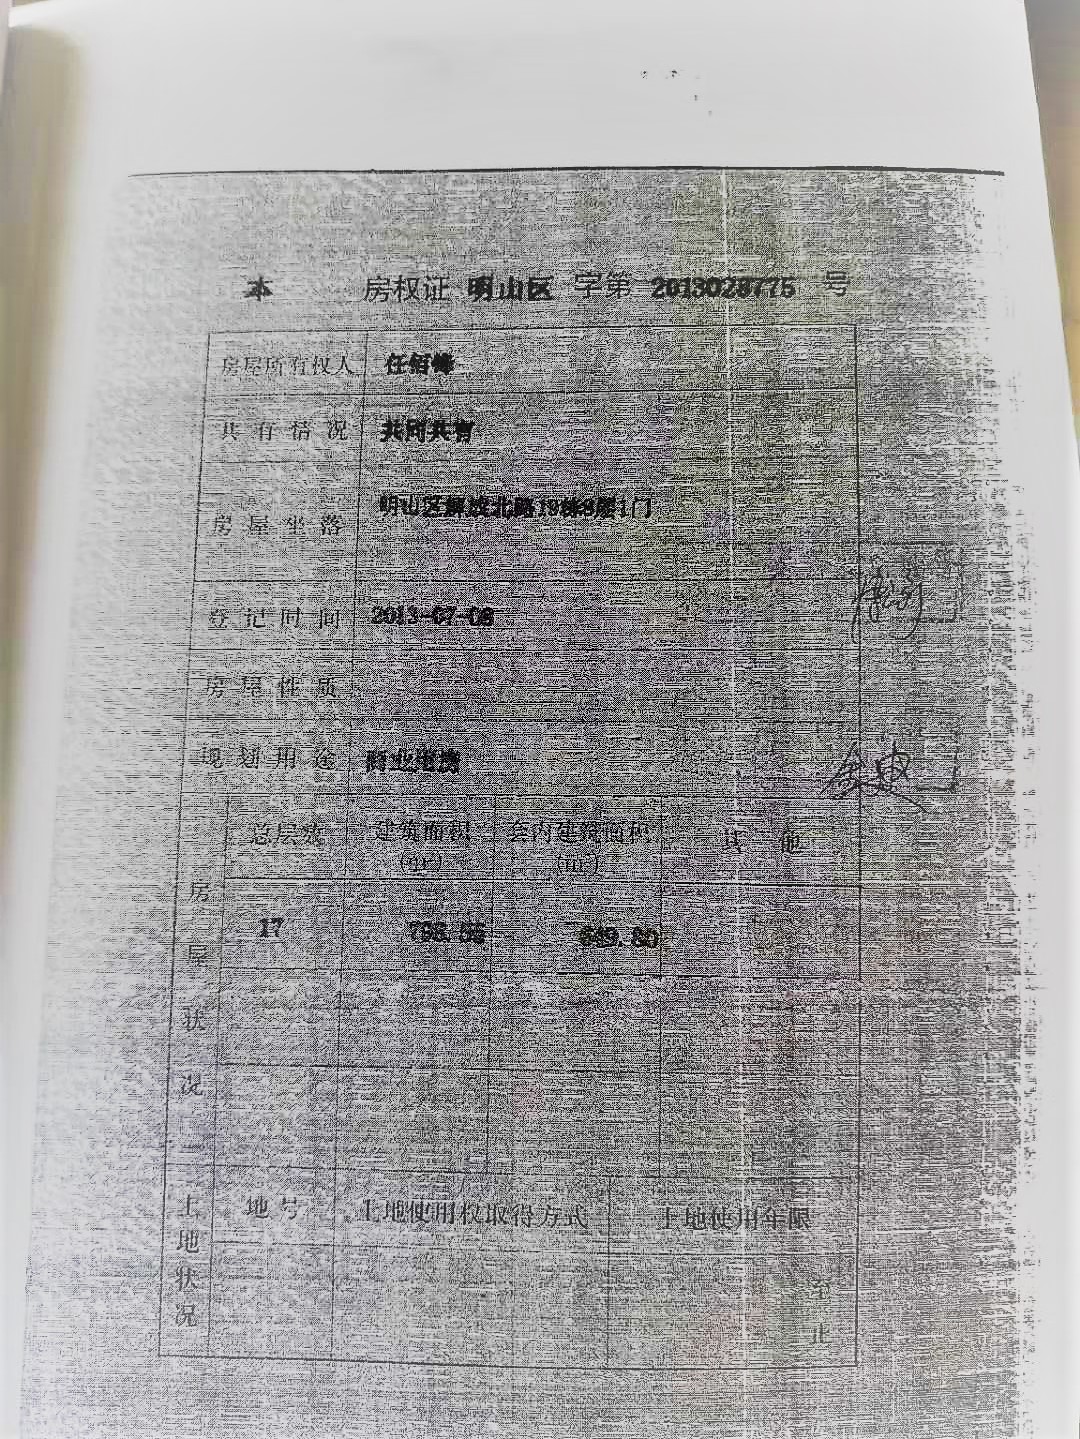 本 房权证 明山区 字第 2013028775 号
房屋所有权人 任
共有情况 共同共有
房屋坐落 明山区解放北路19栋 层1门
登记时间 2013-07-08
房屋性质
规划用途 商业用房
房屋状况
总层数 建筑面积(㎡) 套内建筑面积(㎡) 其他
17 649.80
土地状况
地号 土地使用权取得方式 土地使用年限
至
止